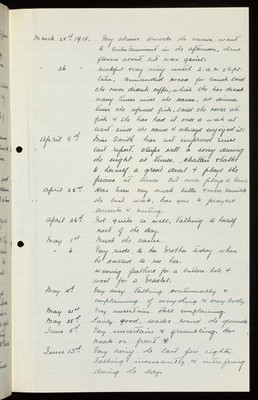 March 21st 1918. Very abusive towards the nurses, went
to entertainment in the afternoon, threw
flowers about, but was quiet.
" 26 " very noisy until 2 a.m. slept
later, demanded cocoa for lunch said
she never drank coffee, which she has drunk
many times since she came, at dinner
time she refused fish, said she never ate
fish & she has had it once a week at
least since she came & always enjoyed it.
April 8th Miss Smith has not improved since
last report, sleeps well is noisy during
the night at times, chatters & talks
to herself a great deal & plays the
piano at times but now plays a time
April 22nd Has been very much better & more sensible
the last week, has gone to prayers
concerts & meeting.
April 26th Not quite so well, talking to herself
most of the day
May 1st Much the same.
" 6 Very rude to her brother today when
he called to see her.
wearing feathers for a button-hole &
wool for a bracelet.
May 14th Very noisy talking continually &
complaining of everything & every body
May 21st Very uncertain still complaining.
May 28th Fairly good, walks round the grounds
June 5th Very uncertain & grumbling. Has
marks on front &
June 13th Very noisy the last few nights
Talking incessantly & interfering
during the day.